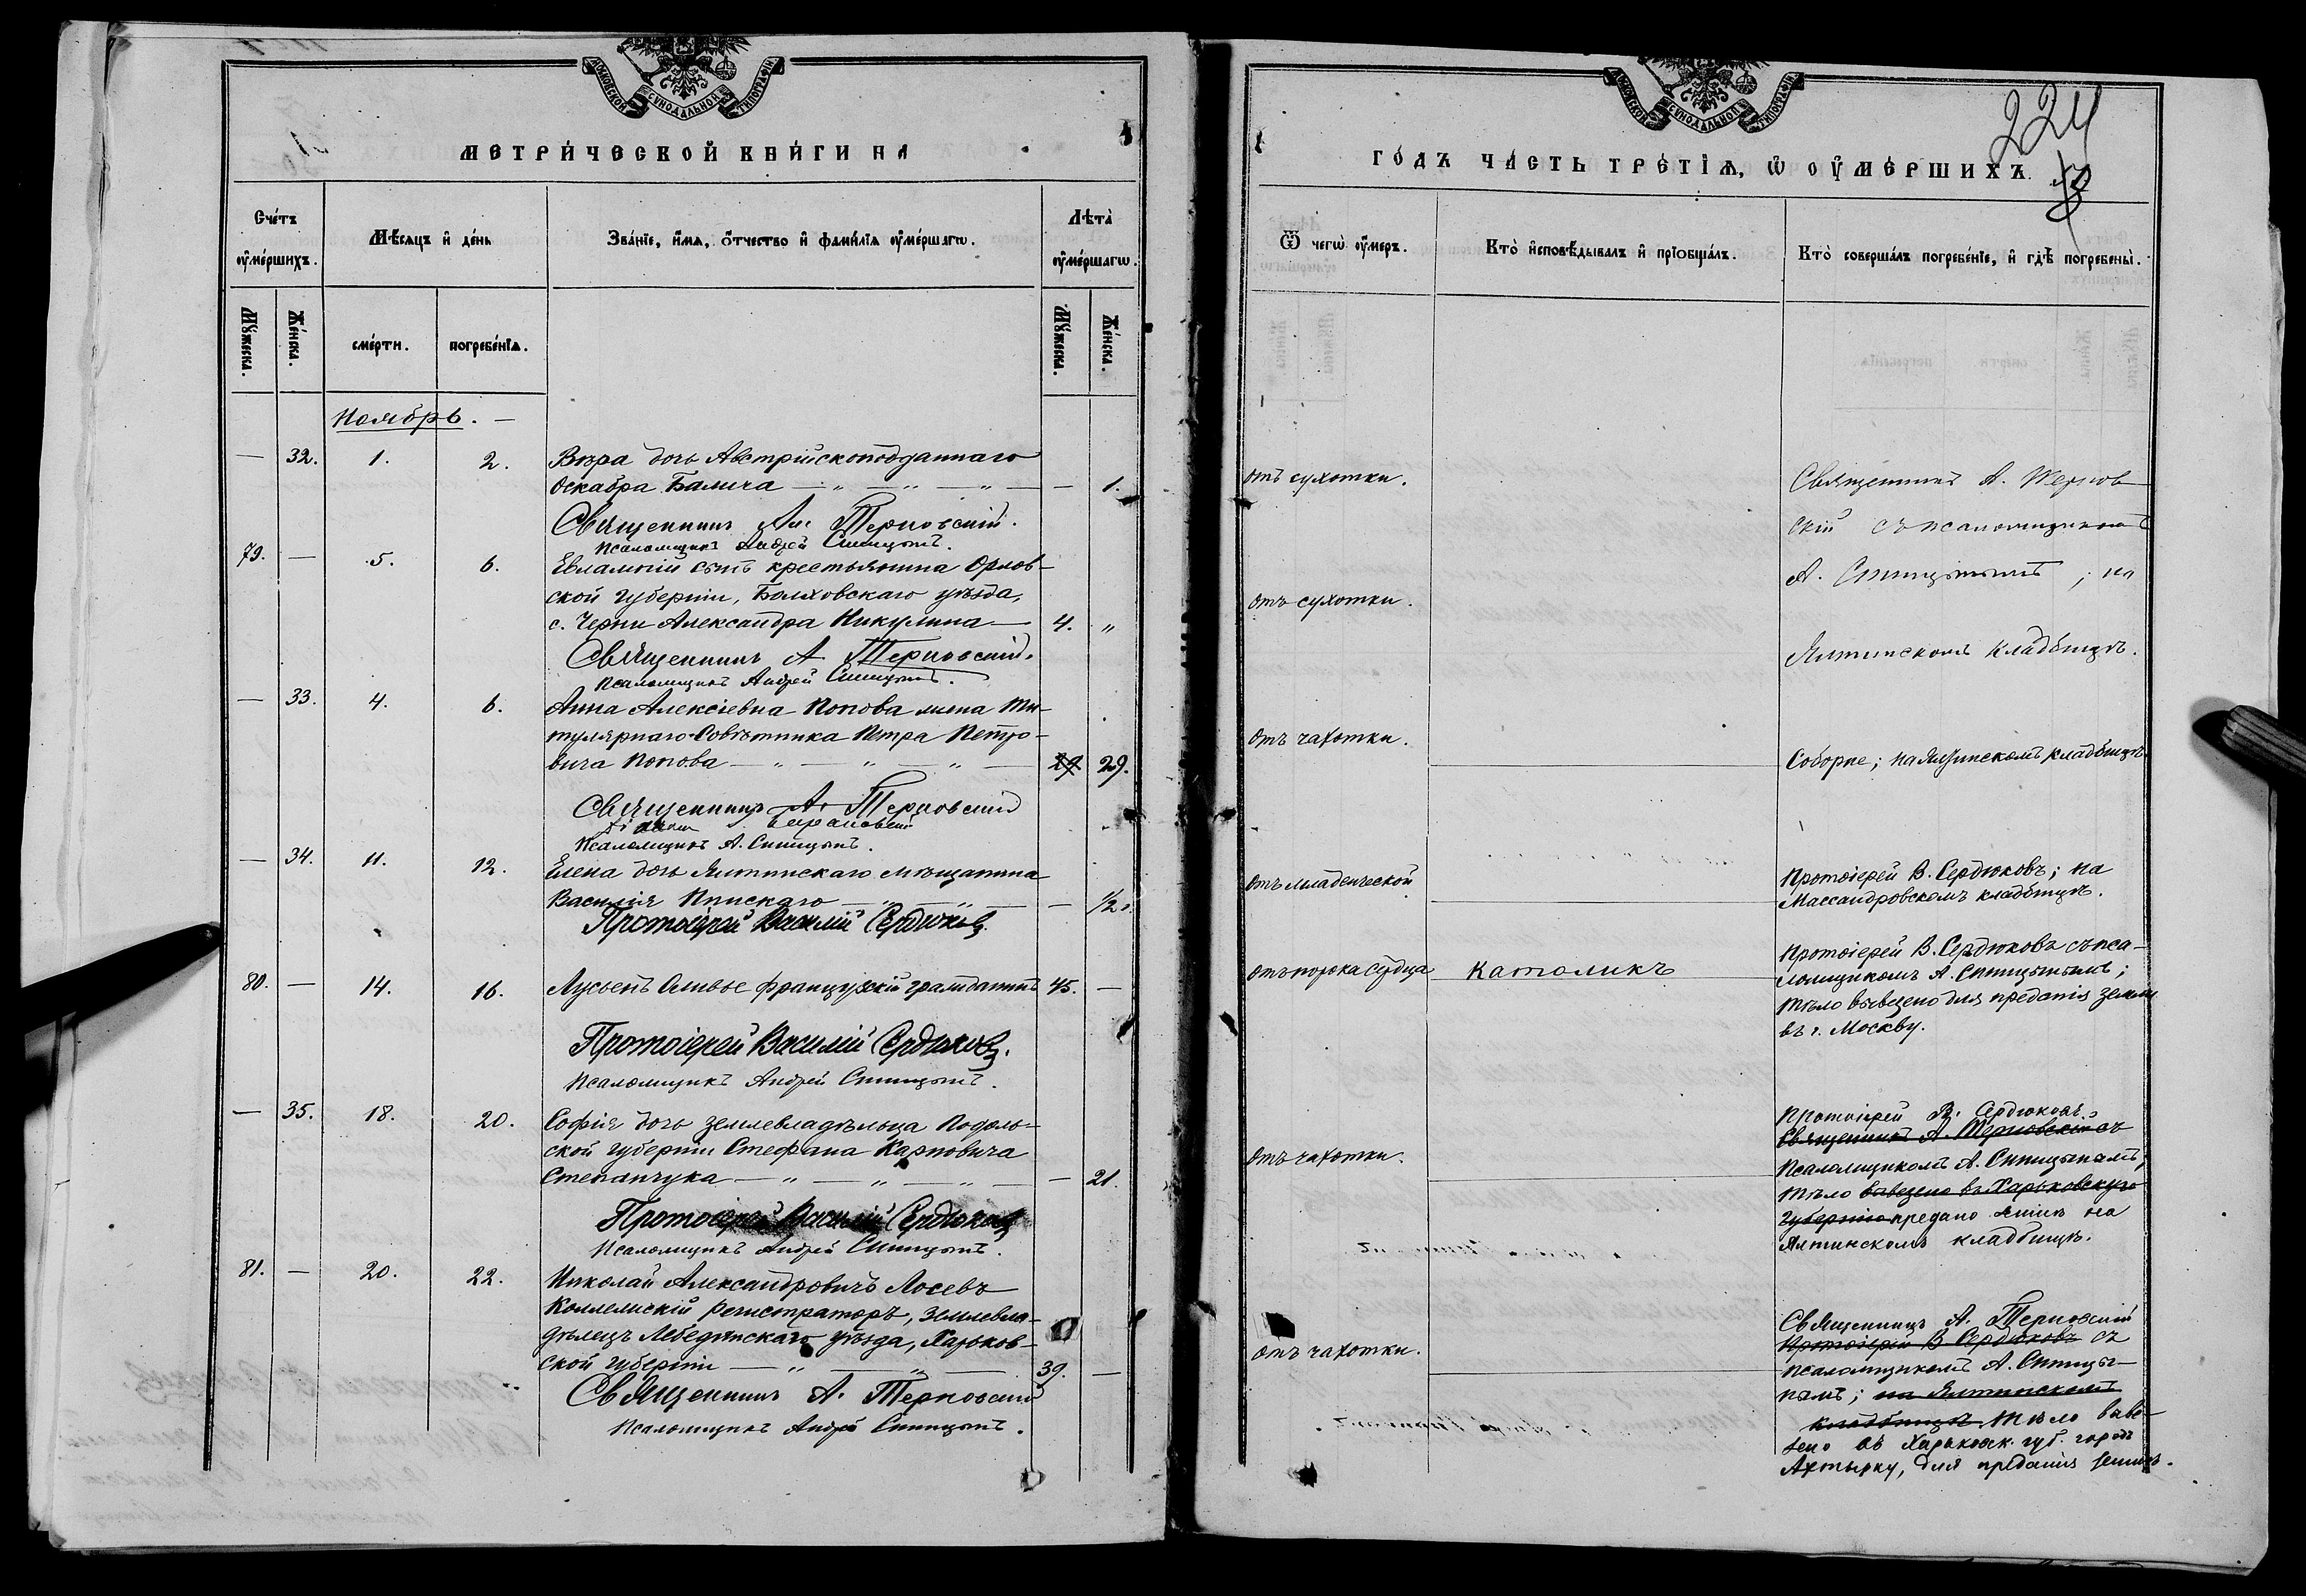 МОСКОВСКОЙ СУНОДАЛЬНОЙ ТИПОГРАФІИ
МЕТРИ́ЧЕСКОЙ КНИ́ГИ НА
Сче́тъ ᲂу҆ме́ршихъ.
Мѣ́сяцъ и҆ де́нь
Зва́нїе, и҆́мѧ, ѻ҆́тчество и҆ фами́лїѧ ᲂу҆ме́ршагѡ.
Лѣта̀ ᲂу҆ме́ршагѡ.
Мꙋ́жеска.
Же́нска.
сме́рти.
погребе́нїѧ.
Мꙋ́жеска.
Же́нска.
Ноябрь. —
— 32. 1. 2. Вѣра дочь Австрійскоподданнаго
Оскабра Балича — „ — „ — „ — — 1.
Священникъ Ал. Терновскій.
Псаломщикъ Андрей Синицынъ.
79. — 5. 6. Евлампій сынъ крестьянина Орлов-
ской губерніи, Болховскаго уѣзда,
с. Черни Александра Никулина — 4. „
Священникъ А. Терновскій.
Псаломщикъ Андрей Синицынъ.
— 33. 4. 6. Анна Алексіевна Попова жена Ти-
тулярнаго Совѣтника Петра Петро-
вича Попова — „ — „ — „ — 29 29.
Священникъ А. Терновскій
Псаломщикъ А. Синицынъ.
— 34. 11. 12. Елена дочь Ялтинскаго мѣщанина
Василія — „ — „ — — 1/2 г.
Протоіерей Василій Сердюковъ.
80. — 14. 16. Лусьенъ Оливье французскій гражданинъ 45. —
Протоіерей Василій Сердюковъ.
Псаломщикъ Андрей Синицынъ.
— 35. 18. 20. Софія дочь землевладѣльца Подоль-
ской губерніи Стефана Карповича
Степанчука — „ — „ — „ — — 21.
Протоіерей Василій Сердюковъ
Псаломщикъ Андрей Синицынъ.
81. — 20. 22. Николай Александровичъ Лосевъ
Коллежскій регистраторъ, землевла-
дѣлецъ Лебедянскаго уѣзда, Харьков-
ской губерніи — „ — „ — 39. —
Священникъ А. Терновскій
Псаломщикъ Андрей Синицынъ.
МОСКОВСКОЙ СУНОДАЛЬНОЙ ТИПОГРАФІИ
224
ГО́ДЪ ЧА́СТЬ ТРЕ́ТІѦ, Ѡ҆ ОУ҆МЕ́РШИХЪ
Ѿ чегѡ̀ ᲂу҆́меръ.
Кто̀ и҆сповѣ́дывалъ и҆ прїобща́лъ.
Кто̀ соверша́лъ погребе́нїе, и҆ гдѣ̀ погребены̀.
отъ сухотки.
Священникъ А. Тернов-
скій съ псаломщикомъ
А. Синицынымъ; на
отъ сухотки.
Ялтинскомъ кладбищѣ.
отъ чахотки.
Соборне; на Ялтинскомъ кладбищѣ
отъ младенческой
Протоіерей В. Сердюковъ; на
Массандровскомъ кладбищѣ.
отъ порока сердца Католикъ
Протоіерей В. Сердюковъ съ пса-
ломщикомъ А. Синицынымъ;
тѣло вывезено для преданія земли
въ г. Москву.
отъ чахотки.
Протоіерей В. Сердюковъ
Священникъ А. Терновскій съ
псаломщикомъ А. Синицынымъ;
тѣло вывезено въ Харьковскую
губернію предано землѣ на
Ялтинскомъ кладбищѣ.
отъ чахотки.
Священникъ А. Терновскій
Протоіерей В. Сердюковъ съ
псаломщикомъ А. Синицы-
нымъ; на Ялтинскомъ
кладбищѣ тѣло выве-
зено въ Харьковск. губ. городъ
Ахтырку, для преданія землѣ.